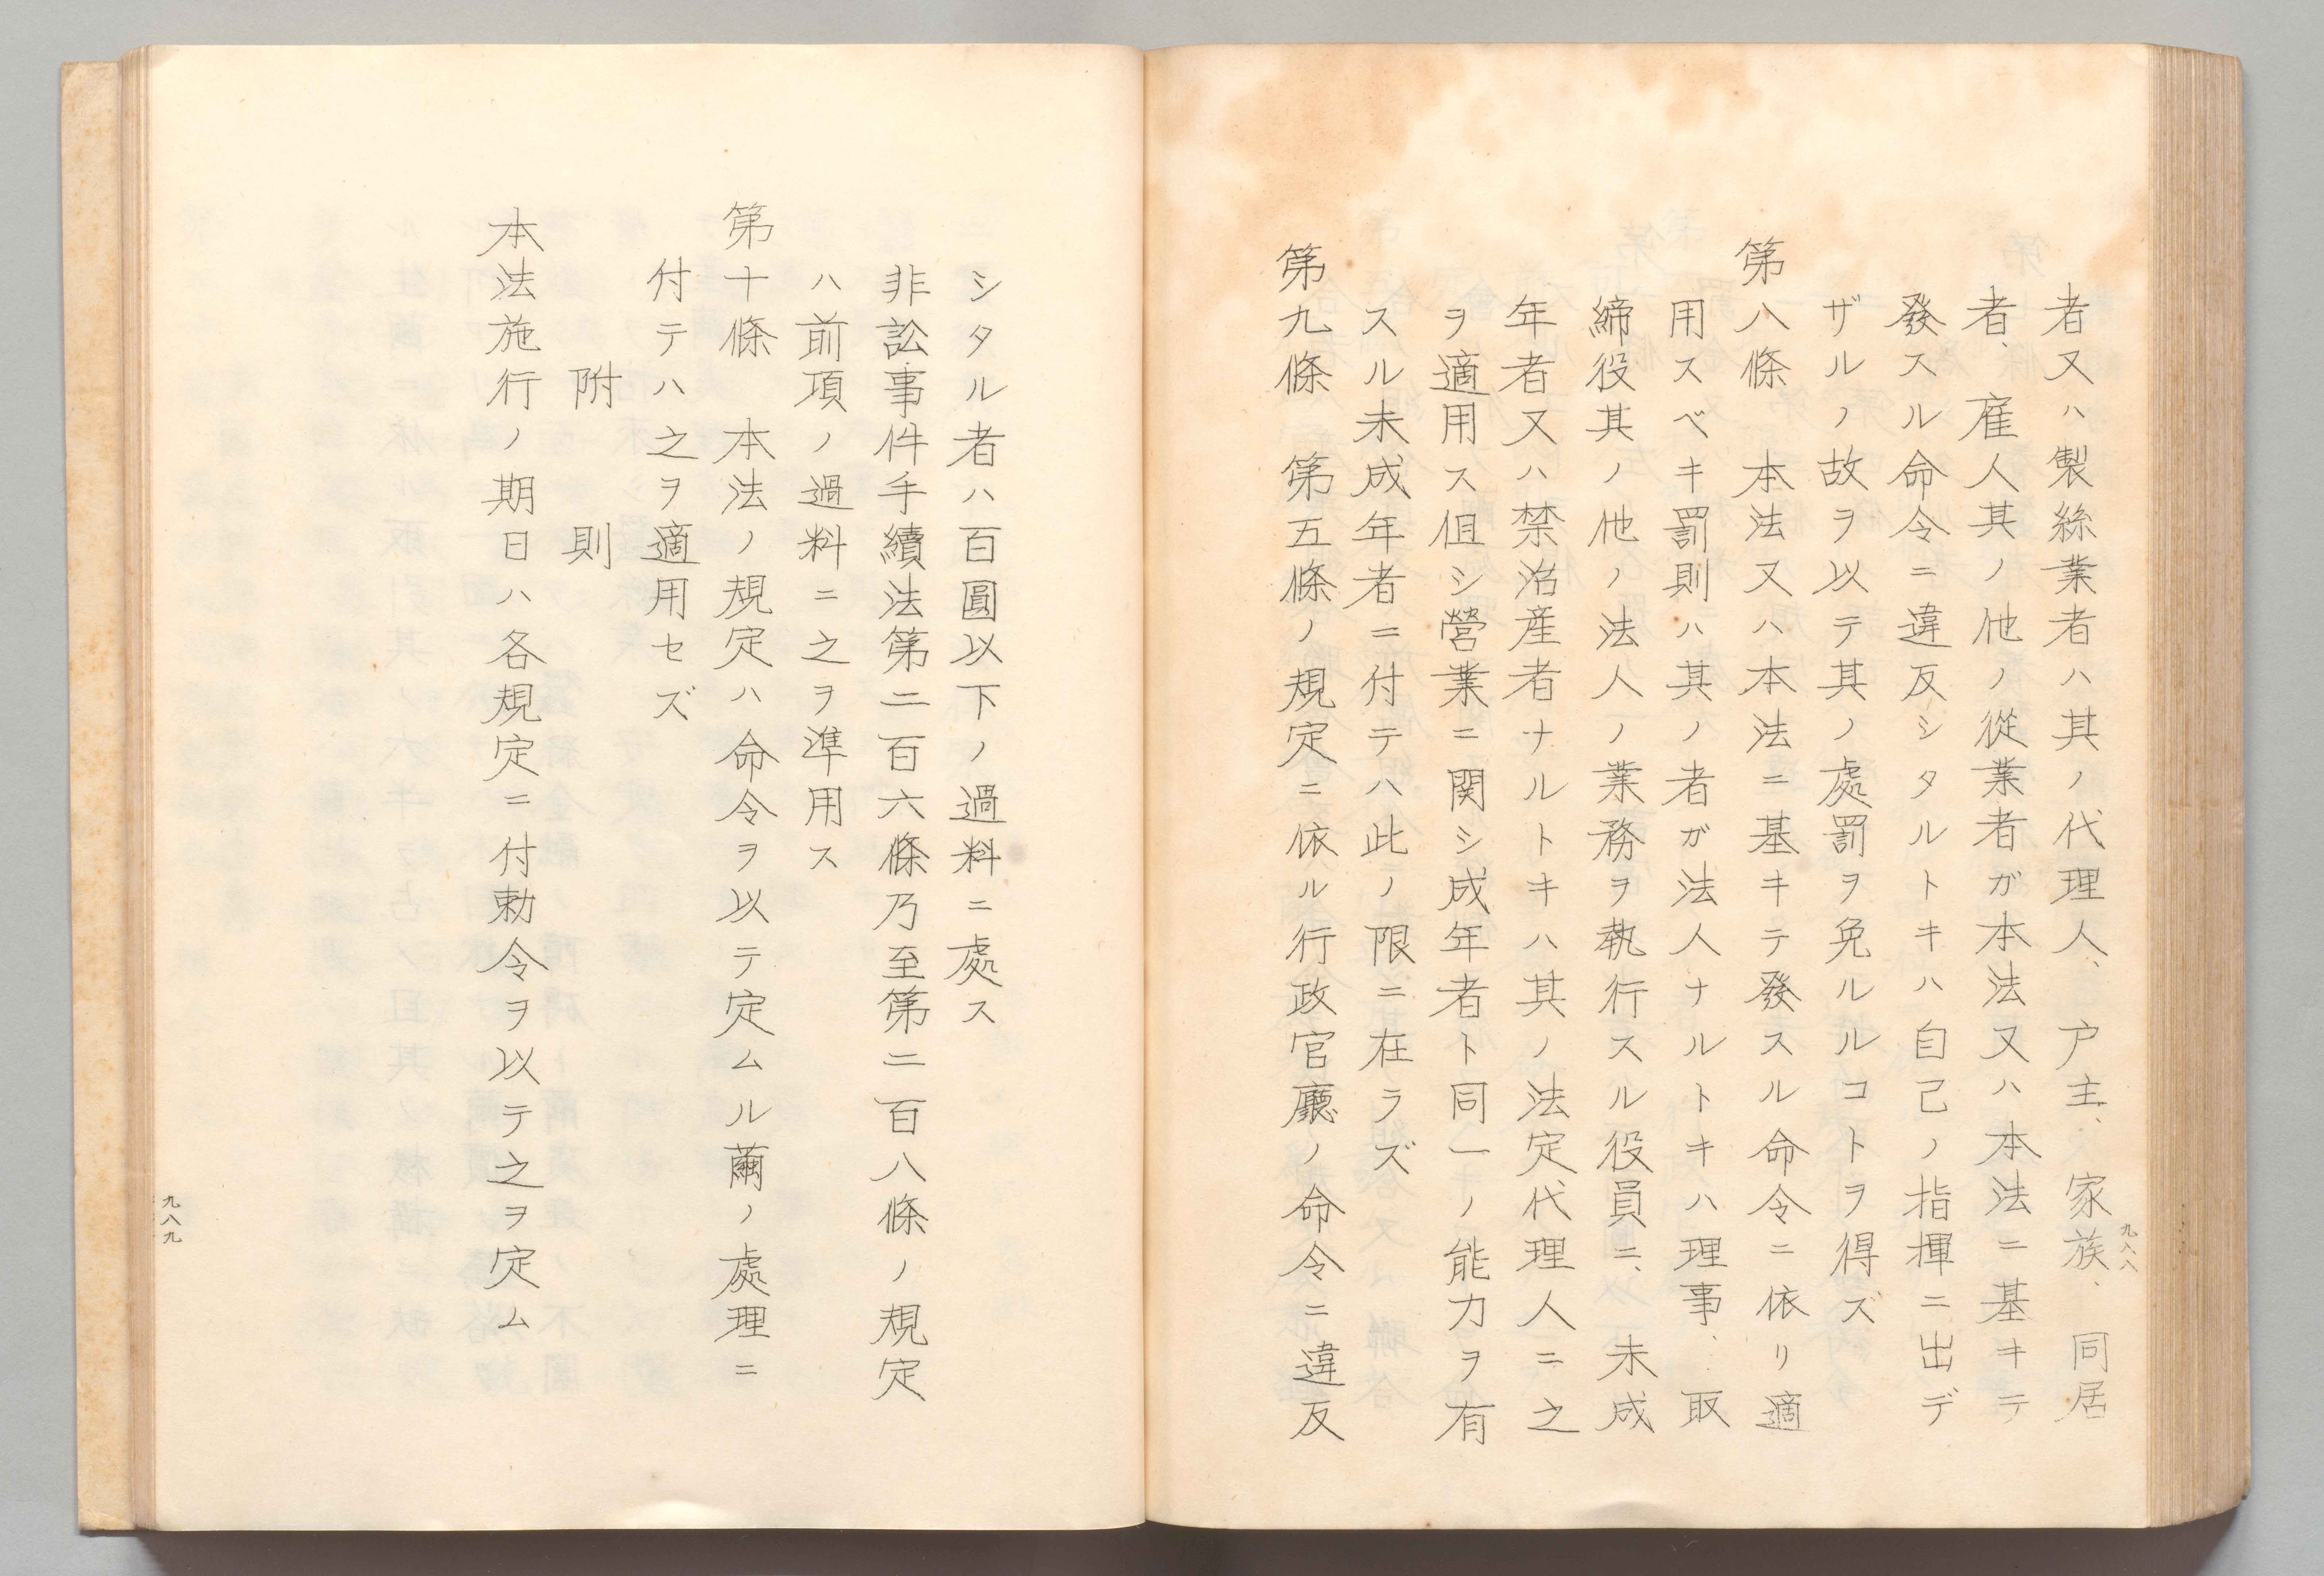 者又ハ製絲業者ハ其ノ代理人、戸主、家族、同居
者、雇人其ノ他ノ從業者ガ本法又ハ本法ニ基キテ
發スル命令ニ違反シタルトキハ自己ノ指揮ニ出デ
ザルノ故ヲ以テ其ノ處罰ヲ免ルルコトヲ得ズ
第八條　本法又ハ本法ニ基キテ發スル命令ニ依リ適
用スベキ罰則ハ其ノ者ガ法人ナルトキハ理事、取
締役其ノ他ノ法人ノ業務ヲ執行スル役員ニ、未成
年者又ハ禁治産者ナルトキハ其ノ法定代理人ニ之
ヲ適用ス但シ營業ニ関シ成年者ト同一ノ能力ヲ有
スル未成年者ニ付テハ此ノ限ニ在ラズ
第九條　第五條ノ規定ニ依ル行政官廳ノ命令ニ違反
九八八
シタル者ハ百圓以下ノ過料ニ處ス
非訟事件手續法第二百六條乃至第二百八條ノ規定
ハ前項ノ過料ニ之ヲ準用ス
第十條　本法ノ規定ハ命令ヲ以テ定ムル繭ノ處理ニ
付テハ之ヲ適用セズ
附則
本法施行ノ期日ハ各規定ニ付勅令ヲ以テ之ヲ定ム
九八九